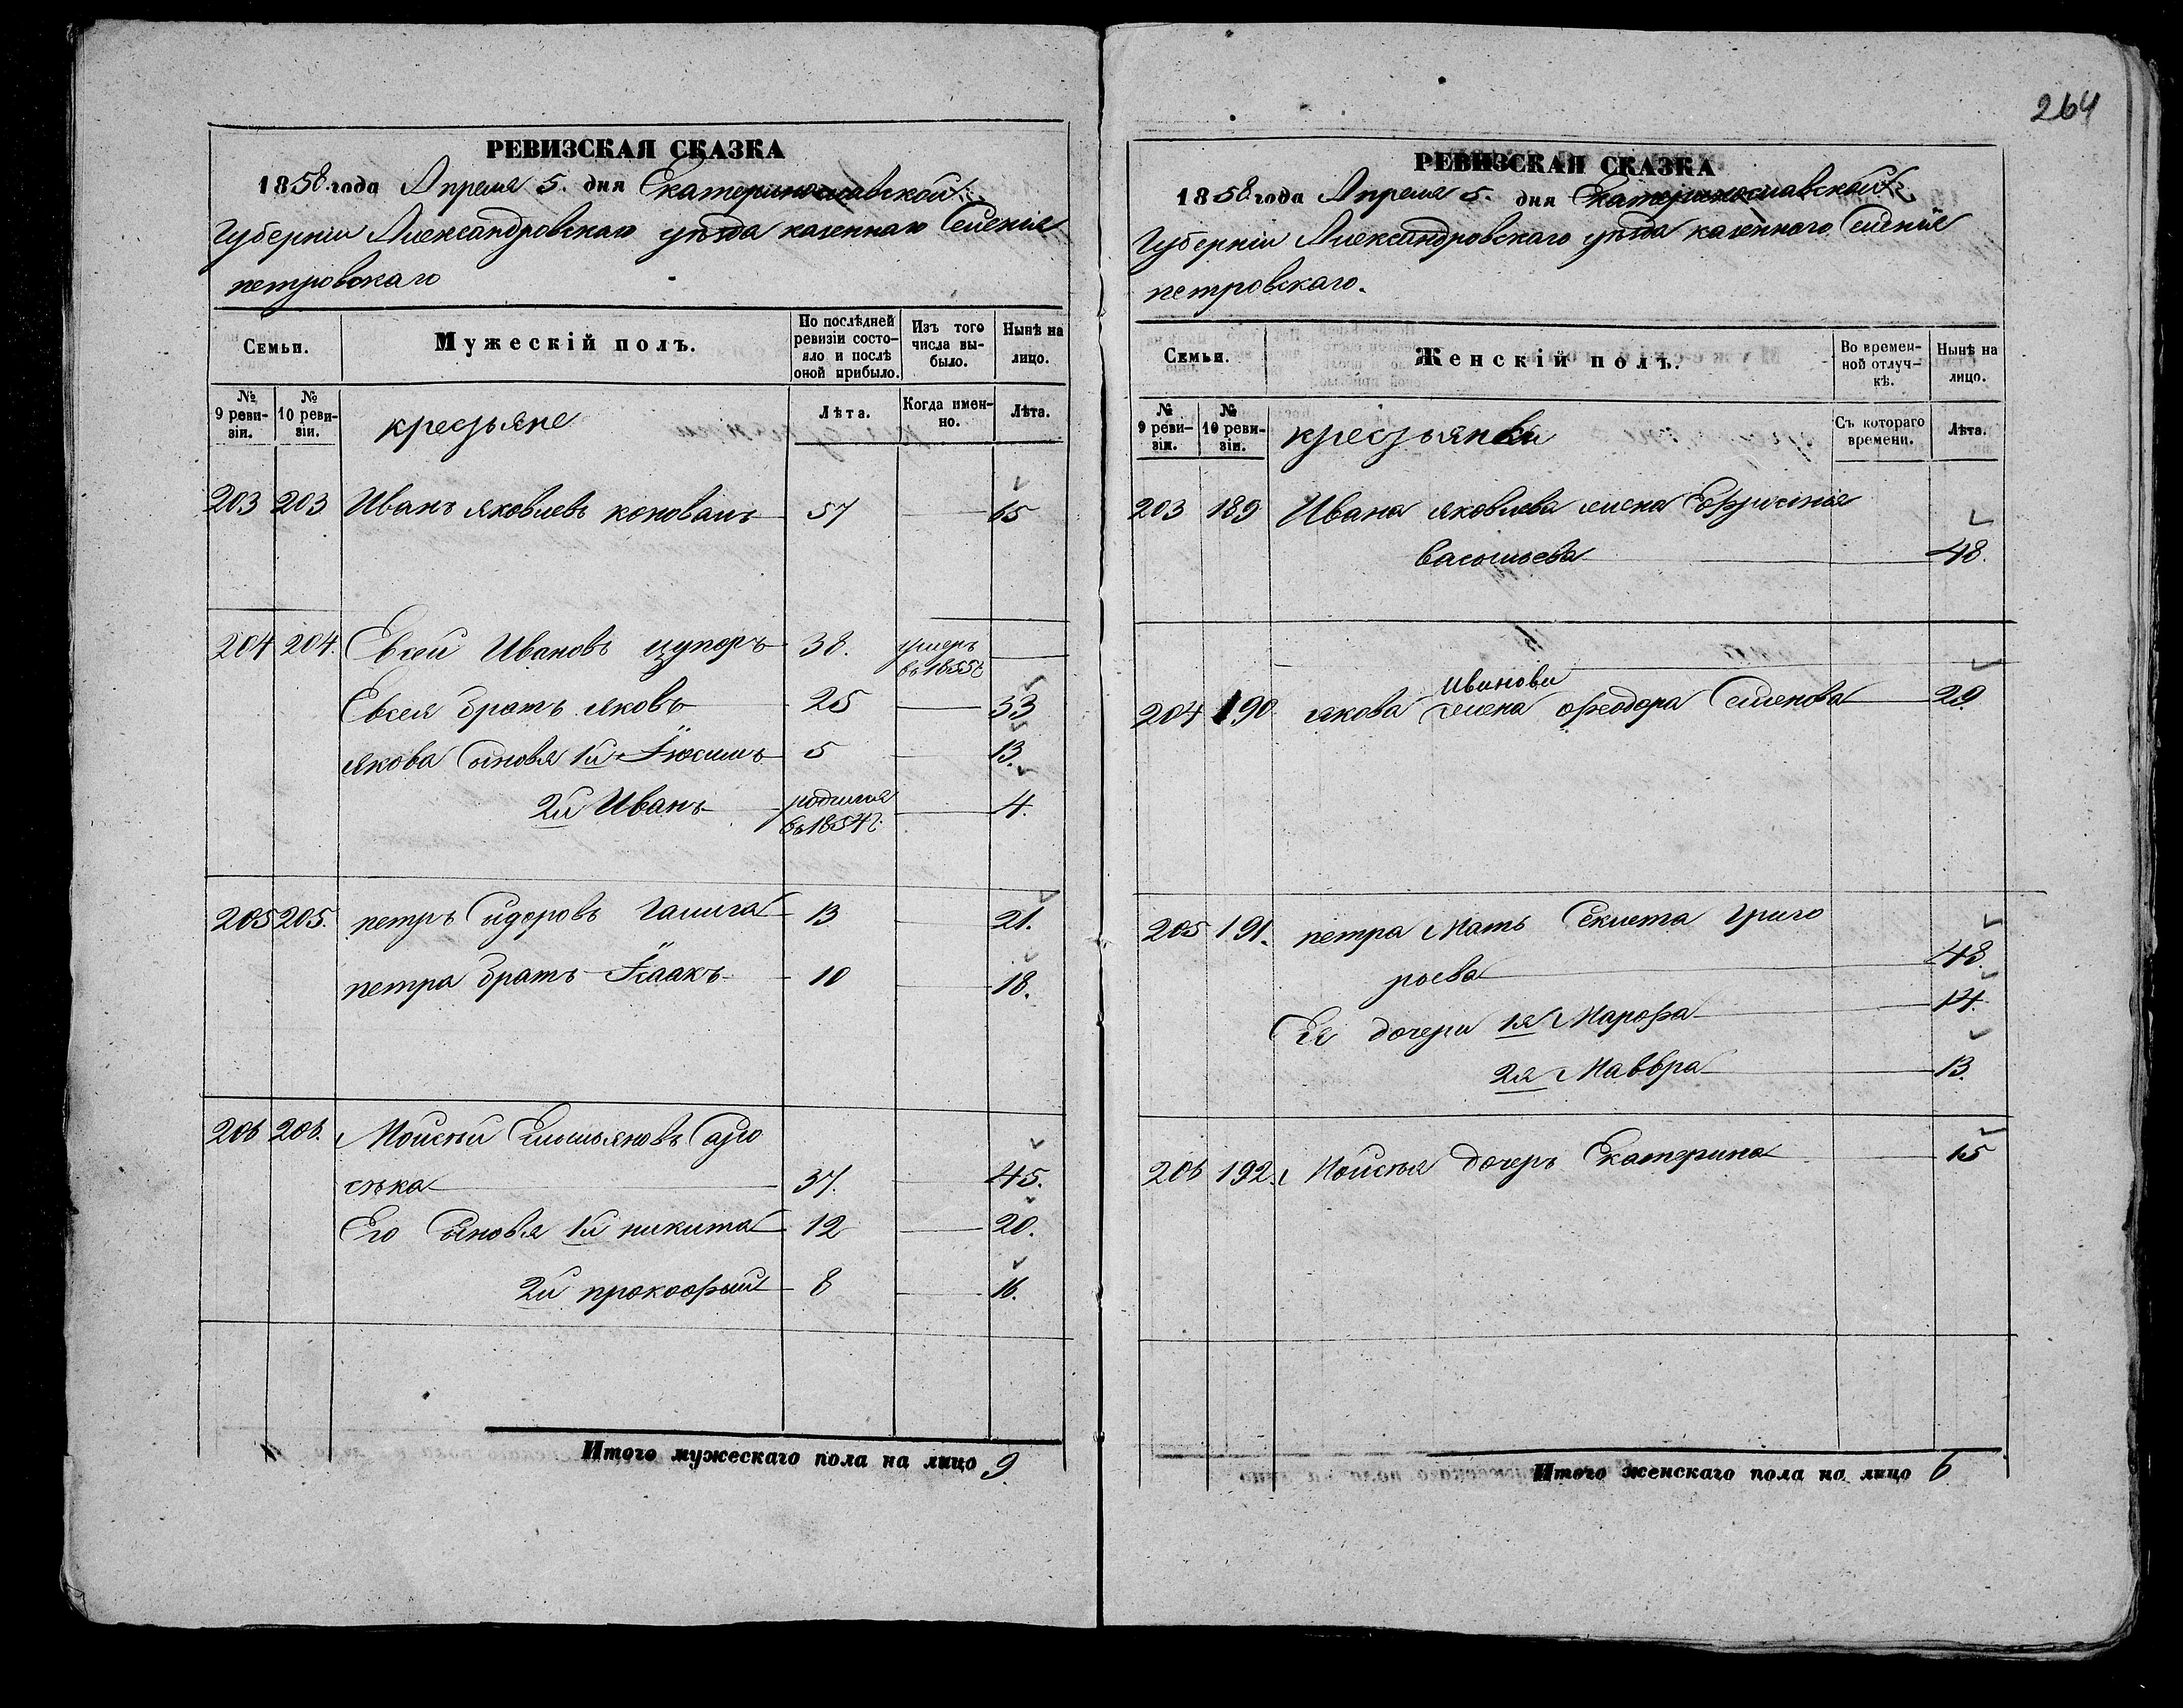 264
РЕВИЗСКАЯ СКАЗКА
1858 года Апреля 5. дня Екатеринославской
Губерніи Александровскаго уѣзда казеннаго Селенія
петровскаго
Семьи.
Мужескій полъ.
По послѣдней ревизіи состо-
яло и послѣ
оной прибыло.
Изъ того
числа вы-
было.
Нынѣ на
лицо.
№ 9 реви-
зіи.
№ 10 реви-
зіи.
крестьяне
Лѣта.
Когда имен-
но.
Лѣта.
203 203 Иванъ яковлевъ коновалъ 57 65
204 204. Евсей Ивановъ цупоръ 38. умеръ
въ 1855г
Евсея братъ яковъ 25 33
якова сыновя 1й 5 13.
2й Иванъ родился 4.
въ 1854г.
205 205. петръ Сидоровъ 13 21.
петра братъ Ісаакъ 10 18.
206 206. Мойсѣй Емельяновъ
37. 45.
Его Сыновя 1й никита 12 20.
2й прокофый 8 16.
Итого мужескаго пола на лицо 9.
РЕВИЗСКАЯ СКАЗКА
1858 года Апреля 5. дня Екатеринославской
Губерніи Александровскаго уѣзда казеннаго Селенія
петровскаго.
Семьи.
Женскій полъ.
Во времен-
ной отлуч-
кѣ.
Нынѣ на
лицо.
№ 9 реви-
зіи.
№ 10 реви-
зіи.
крестьянки
Съ котораго
времени.
Лѣта.
203 189 Ивана яковлева жена Ефросинія
васильева 48.
Иванови
204 190 якова жена феодора Семенова 29.
205 191. петра Мать Феклета Григо
рьева 48.
Ея дочери 1я Марфа 14.
2я Маввра 13.
206 192. Мойсѣя дочеръ Екатерина 15
Итого женскаго пола на лицо 6